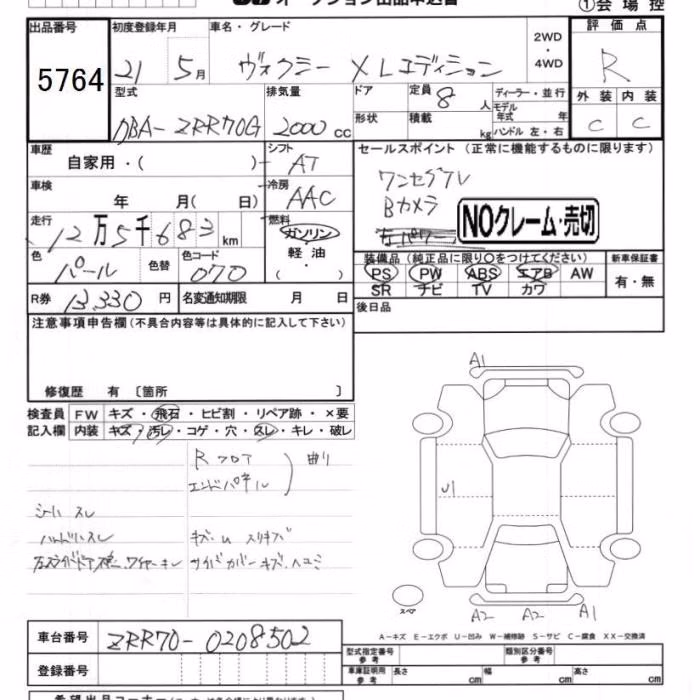 オークション出品申込書
①会場控
出品番号
5764
初度登録年月
21 5月
車名・グレード
ヴォクシー XLエディション
2WD
・
4WD
評価点
R
型式
DBA-ZRR70G
排気量
2000 cc
ドア
形状
定員 8 人
積載 kg
ディーラー・並行
モデル年式 年
ハンドル 左・右
外装 内装
C C
車歴
自家用・( )
シフト
AT
セールスポイント (正常に機能するものに限ります)
ワンセグTV
Bカメラ
NOクレーム・売切
車検
年 月( 日)
冷房
AAC
走行
12万5千683km
燃料
ガソリン・
軽油・
( )
色
パール
色替
色コード
070
装備品 (純正品に限り○をつけてください)
PS PW ABS エアB AW
SR ナビ TV カワ
新車保証書
有・無
R券 13,330 円
名変通知期限 月 日
後日品
注意事項申告欄 (不具合内容等は具体的に記入して下さい)
修復歴 有 〔箇所 〕
検査員
記入欄
FW キズ・飛石・ヒビ割・リペア跡・×要
内装 キズ・汚レ・コゲ・穴・スレ・キレ・破レ
Rフロア
エンドパネル
曲り
シートスレ
ハンドルスレ
キズ・U スリキズ
ワイヤーキレ
サイドカバーキズ・ヘコミ
A1
U1
スペア
A2 A2 A1
A-キズ E-エクボ U-凹み W-補修跡 S-サビ C-腐食 XX-交換済
車台番号 ZRR70-0208502
登録番号
型式指定番号
参考
類別区分番号
参考
車庫証明用
参考
長さ 幅 高さ